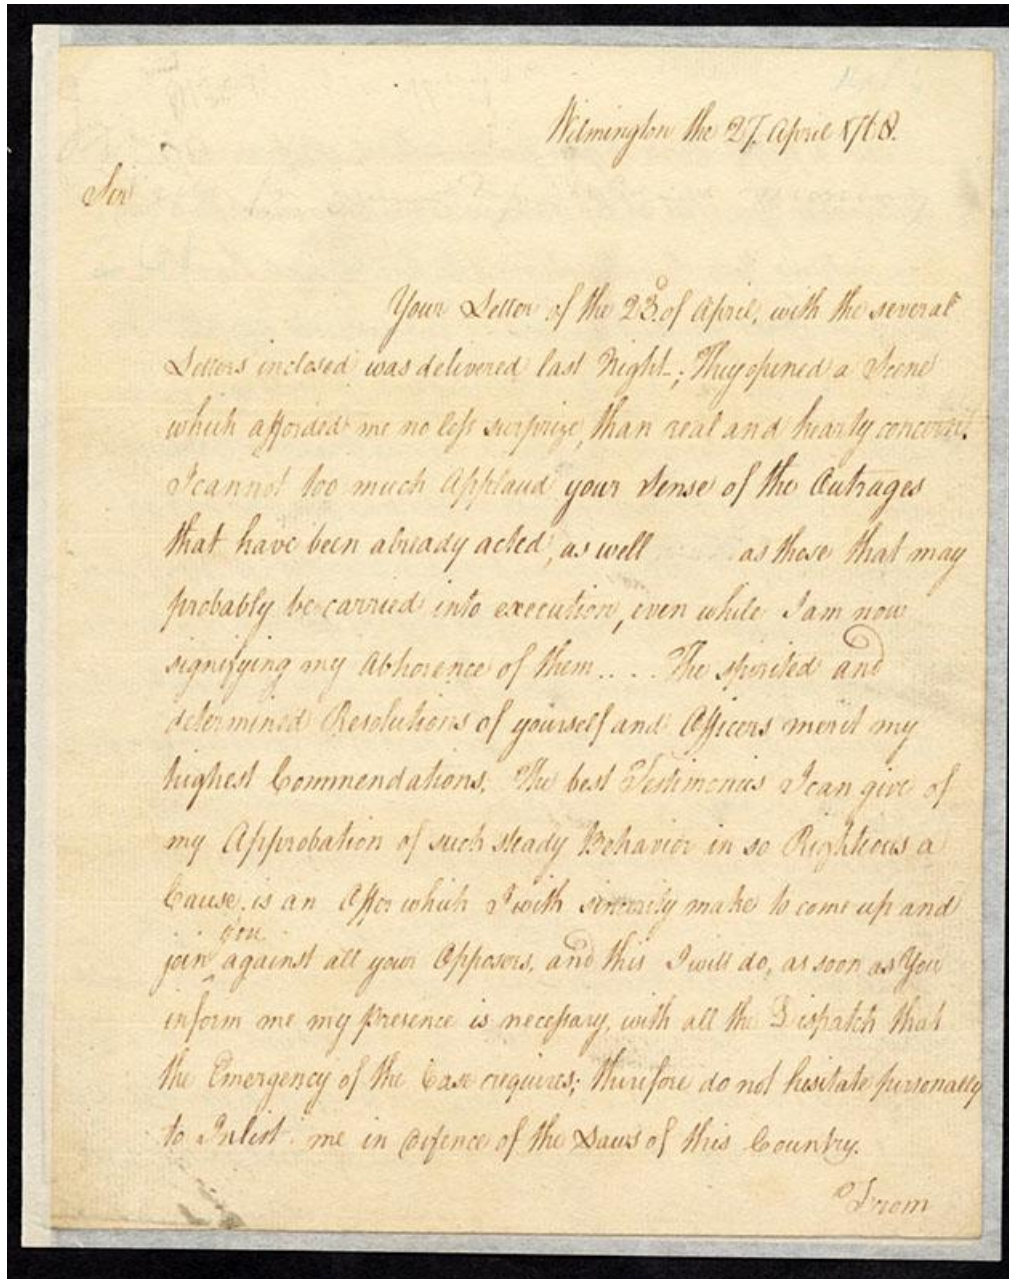 Wilmington the 27. April 1768.
Sir
Your Letter of the 23.d of April, with the several
Letters inclosed was delivered last Night_; They opened a Scene
which afforded me no less surprize, than real and hearty concern.
I cannot too much Applaud your Sense of the Outrages
that have been already acted, as well as those that may
probably be carried into execution, even while I am now
signifying my Abhorence of them.... The spirited and
determined Resolutions of yourself and Officers merit my
highest Commendations. The best Testimonies I can give of
my Approbation of such steady Behavior in so Righteous a
Cause, is an Offer which I with sincerity make to come up and
you
join against all your Opposers, and this I will do, as soon as You
inform me my presence is necessary, with all the Dispatch that
the Emergency of the Case requires; therefore do not hesitate personally
to Inlist me in Defence of the Laws of this Country.
From